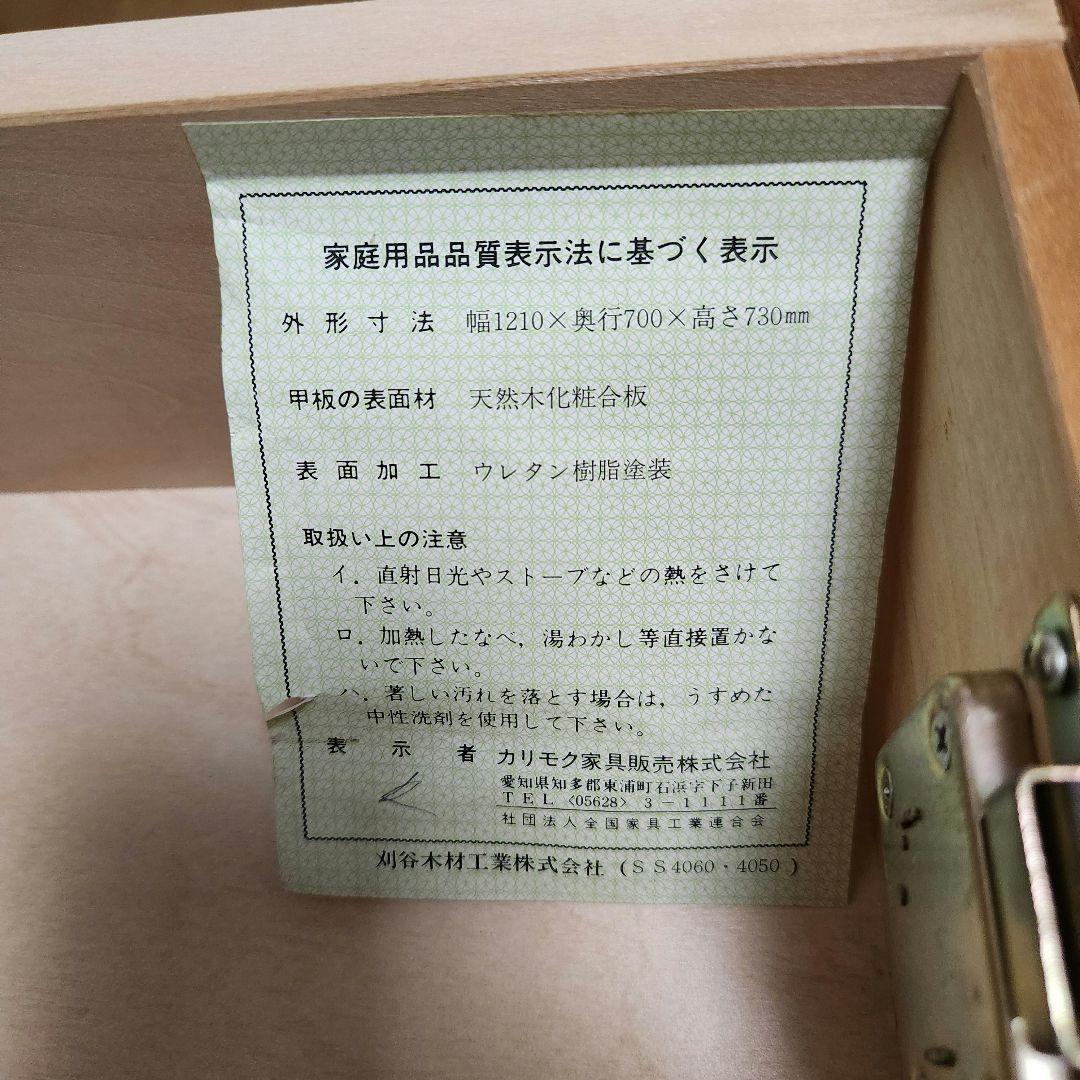 家庭用品品質表示法に基づく表示
外形寸法 幅1210×奥行700×高さ730mm
甲板の表面材 天然木化粧合板
表面加工 ウレタン樹脂塗装
取扱い上の注意
イ．直射日光やストーブなどの熱をさけて
下さい。
ロ．加熱したなべ，湯わかし等直接置かな
いで下さい。
ハ．著しい汚れを落とす場合は，うすめた
中性洗剤を使用して下さい。
表示者 カリモク家具販売株式会社
愛知県知多郡東浦町石浜字下子新田
TEL〈05628〉3－1111番
社団法人全国家具工業連合会
刈谷木材工業株式会社（SS4060・4050）